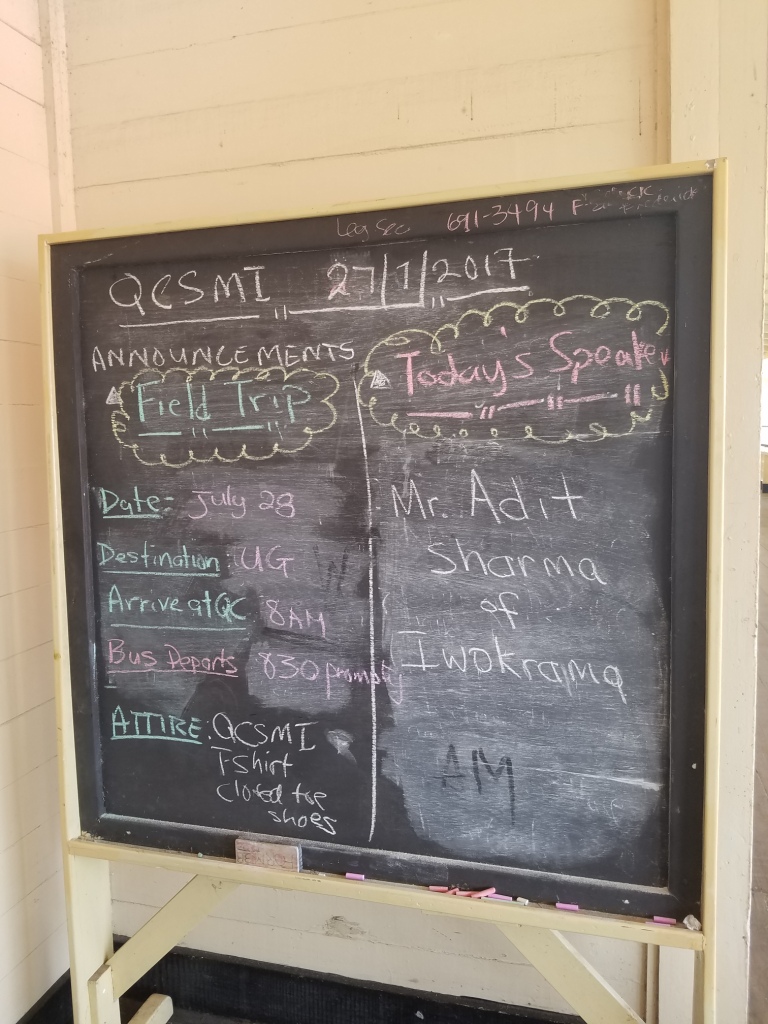 Leg Sec 691-3494
QCSMI 27/7/2017
ANNOUNCEMENTS
Field Trip
Date:- July 28
Destination: UG
Arrive at QC 8AM
Bus Departs 830 promptly
ATTIRE: QCSMI
T-Shirt
closed toe
shoes
Today's Speaker
Mr. Adit
Sharma
of
Iwokrama
AM